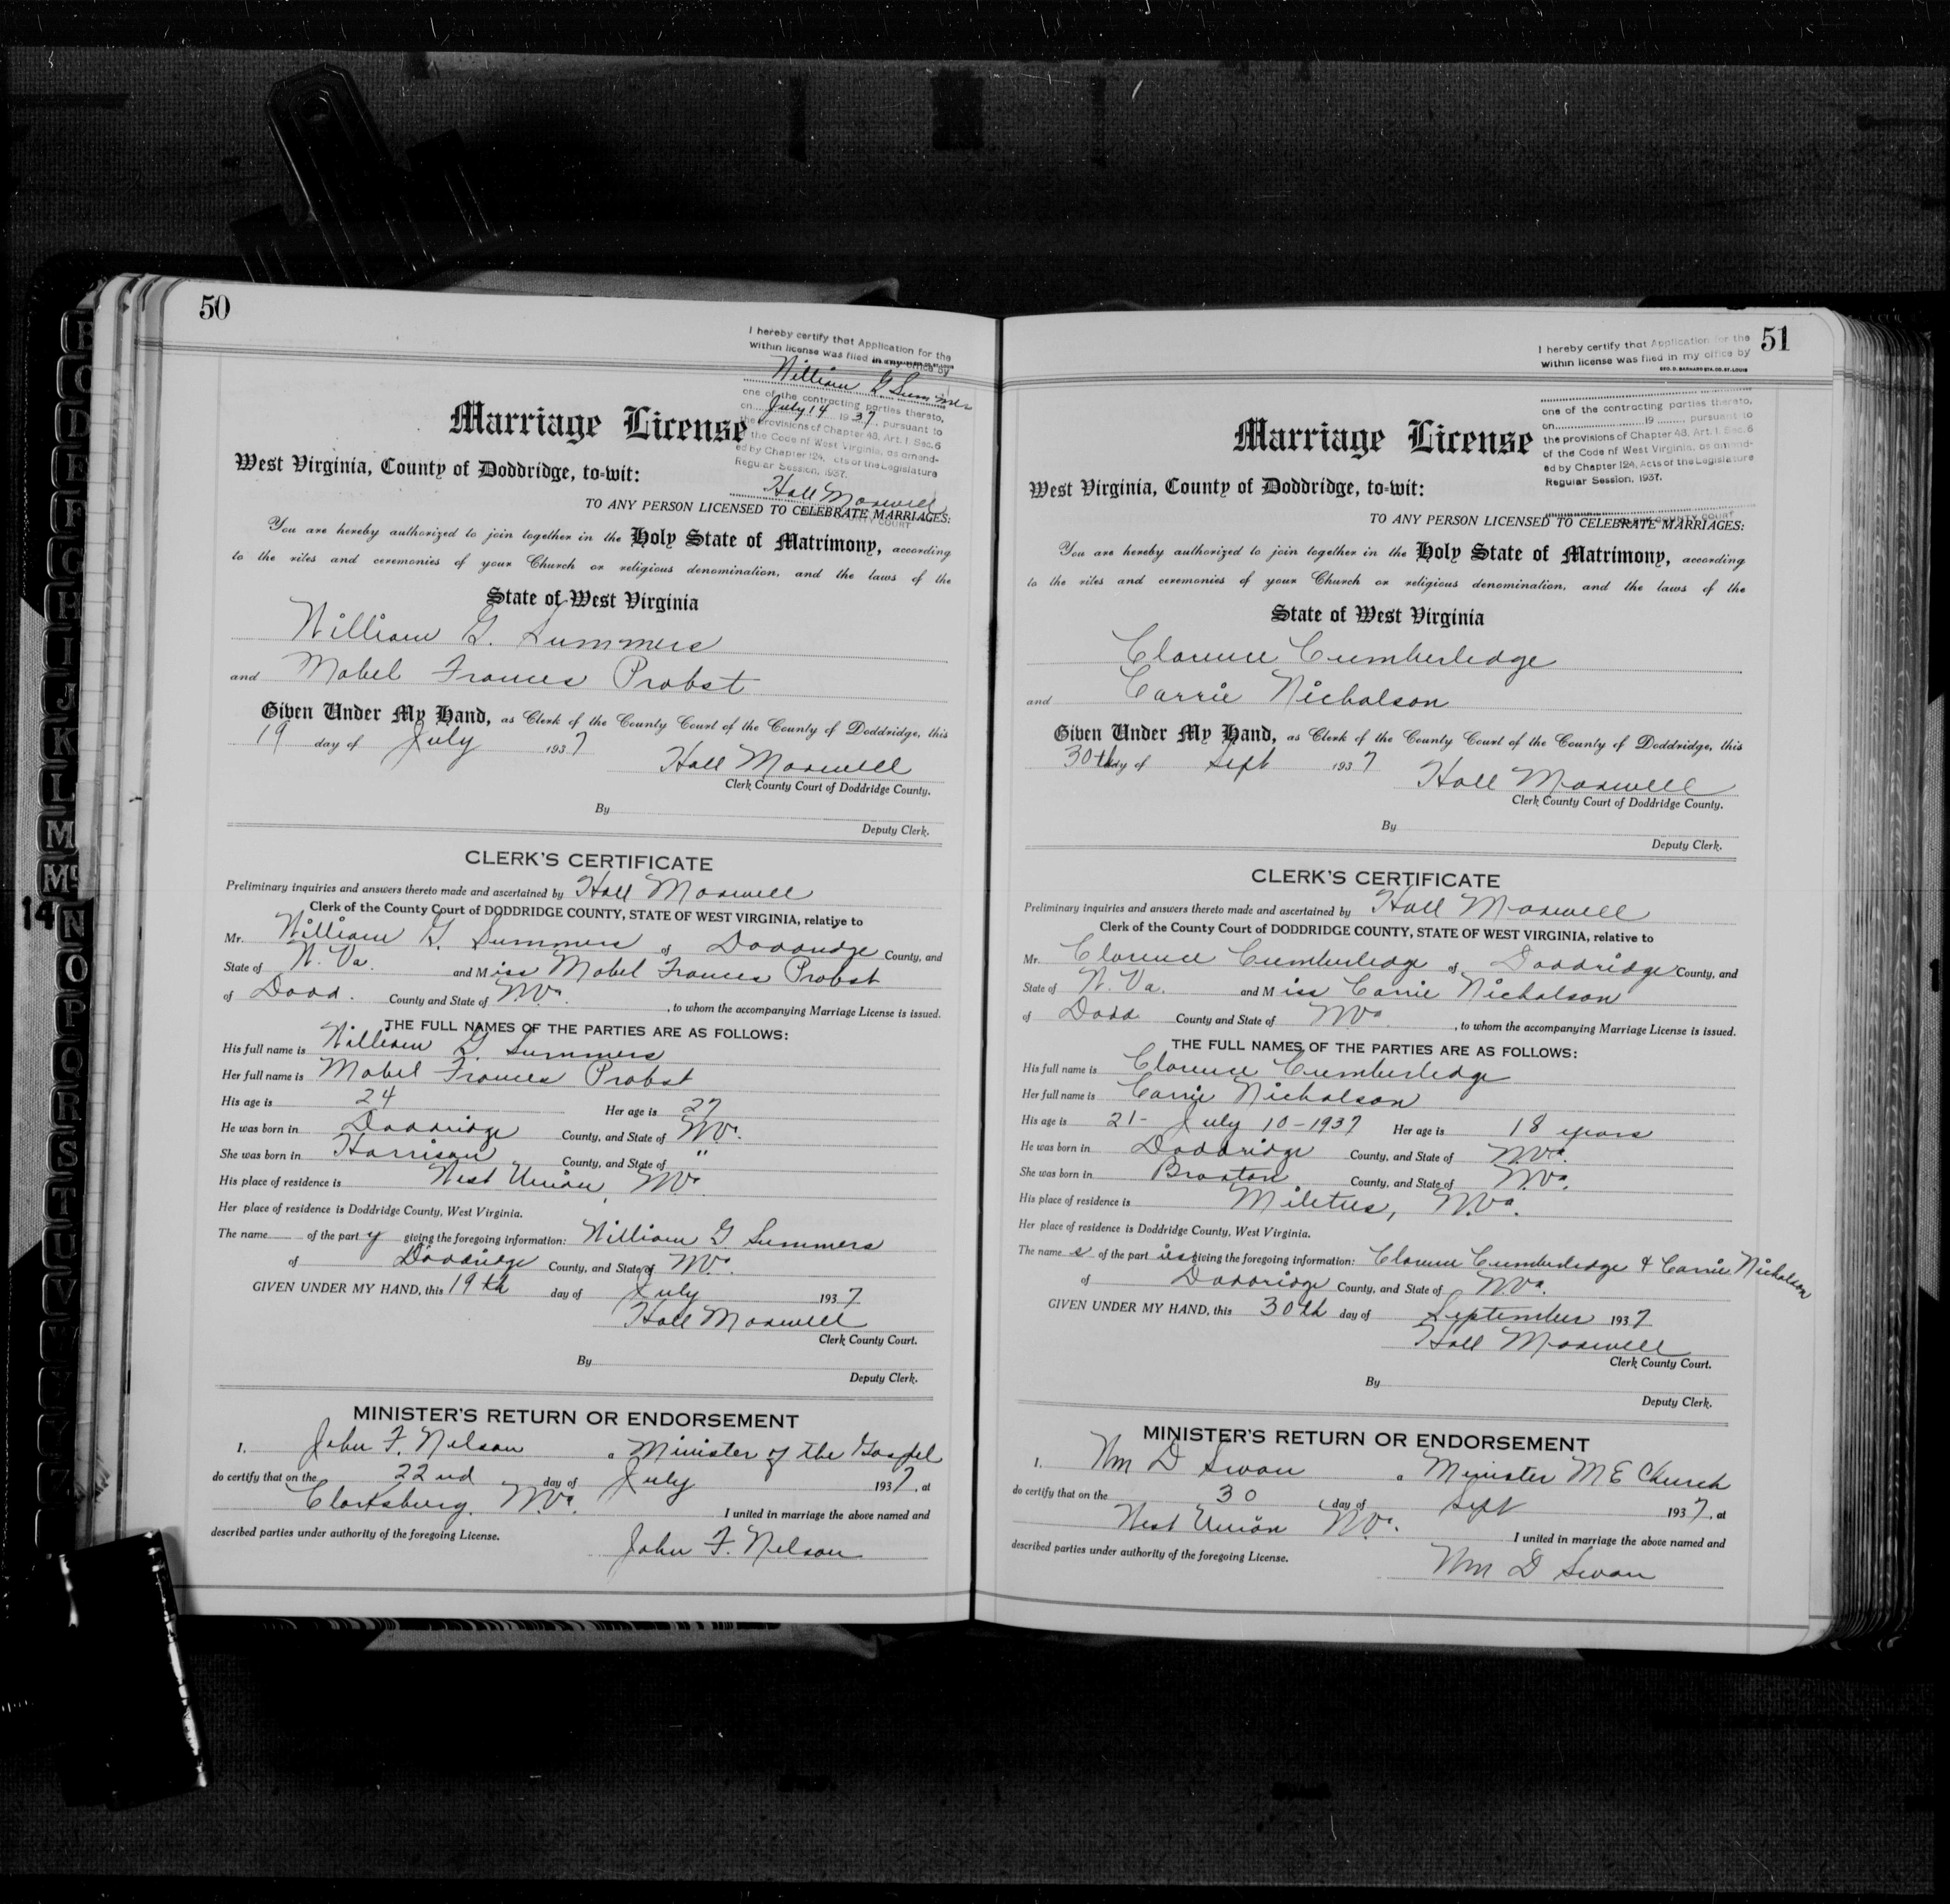 50
I hereby certify that Application for the
within license was filed in my office by
William G Summers
one of the contracting parties thereto,
on July 14 1937, pursuant to
the provisions of Chapter 48, Art. 1. Sec. 6
the Code of West Virginia, as amend-
ed by Chapter 124, cts of the Legislature
Regular Session, 1937.
Hall Maxwell
COUNTY COURT
Marriage License
West Virginia, County of Doddridge, to-wit:
TO ANY PERSON LICENSED TO CELEBRATE MARRIAGES:
You are hereby authorized to join together in the Holy State of Matrimony, according
to the rites and ceremonies of your Church or religious denomination, and the laws of the
State of West Virginia
William G. Summers
and Mabel Frances Probst
Given Under My Hand, as Clerk of the County Court of the County of Doddridge, this
19 day of July 1937
Hall Maxwell
Clerk County Court of Doddridge County.
By
Deputy Clerk.
CLERK'S CERTIFICATE
Preliminary inquiries and answers thereto made and ascertained by Hall Maxwell
Clerk of the County Court of DODDRIDGE COUNTY, STATE OF WEST VIRGINIA, relative to
Mr. William G. Summers of Doddridge County, and
State of W. Va. and Miss Mabel Frances Probst
of Dodd. County and State of W.Va. , to whom the accompanying Marriage License is issued.
THE FULL NAMES OF THE PARTIES ARE AS FOLLOWS:
His full name is William G. Summers
Her full name is Mabel Frances Probst
His age is 24 Her age is 27
He was born in Doddridge County, and State of W.Va.
She was born in Harrison County, and State of "
His place of residence is West Union, W.Va.
Her place of residence is Doddridge County, West Virginia.
The name of the party giving the foregoing information: William G Summers
of Doddridge County, and State of W.Va.
GIVEN UNDER MY HAND, this 19th day of July 1937
Hall Maxwell
Clerk County Court.
By
Deputy Clerk.
MINISTER'S RETURN OR ENDORSEMENT
I, John F. Nelson a Minister of the Gospel
do certify that on the 22nd day of July 1937, at
Clarksburg, W.Va. I united in marriage the above named and
described parties under authority of the foregoing License.
John F. Nelson
51
I hereby certify that Application for the
within license was filed in my office by
GEO. D. BARNARD STA. CO. ST. LOUIS
one of the contracting parties thereto,
on 19 pursuant to
the provisions of Chapter 48, Art. 1. Sec. 6
of the Code of West Virginia, as amend-
ed by Chapter 124, Acts of the Legislature
Regular Session, 1937.
COUNTY COURT
Marriage License
West Virginia, County of Doddridge, to-wit:
TO ANY PERSON LICENSED TO CELEBRATE MARRIAGES:
You are hereby authorized to join together in the Holy State of Matrimony, according
to the rites and ceremonies of your Church or religious denomination, and the laws of the
State of West Virginia
Clarence Cumberledge
and Carrie Nicholson
Given Under My Hand, as Clerk of the County Court of the County of Doddridge, this
30th day of Sept 1937
Hall Maxwell
Clerk County Court of Doddridge County.
By
Deputy Clerk.
CLERK'S CERTIFICATE
Preliminary inquiries and answers thereto made and ascertained by Hall Maxwell
Clerk of the County Court of DODDRIDGE COUNTY, STATE OF WEST VIRGINIA, relative to
Mr. Clarence Cumberledge of Doddridge County, and
State of W. Va. and Miss Carrie Nicholson
of Dodd County and State of W.Va. , to whom the accompanying Marriage License is issued.
THE FULL NAMES OF THE PARTIES ARE AS FOLLOWS:
His full name is Clarence Cumberledge
Her full name is Carrie Nicholson
His age is 21- July 10-1937 Her age is 18 years
He was born in Doddridge County, and State of W.Va.
She was born in Braxton County, and State of W.Va.
His place of residence is Miletus, W.Va.
Her place of residence is Doddridge County, West Virginia.
The names of the parties giving the foregoing information: Clarence Cumberledge & Carrie Nicholson
of Doddridge County, and State of W.Va.
GIVEN UNDER MY HAND, this 30th day of September 1937
Hall Maxwell
Clerk County Court.
By
Deputy Clerk.
MINISTER'S RETURN OR ENDORSEMENT
I, Wm D Swan a Minister M E Church
do certify that on the 30 day of Sept 1937, at
West Union W.Va. I united in marriage the above named and
described parties under authority of the foregoing License.
Wm D Swan
B
C
D
E
F
G
H
I
J
K
L
M
Mc
14
N
O
P
Q
R
S
T
U
V